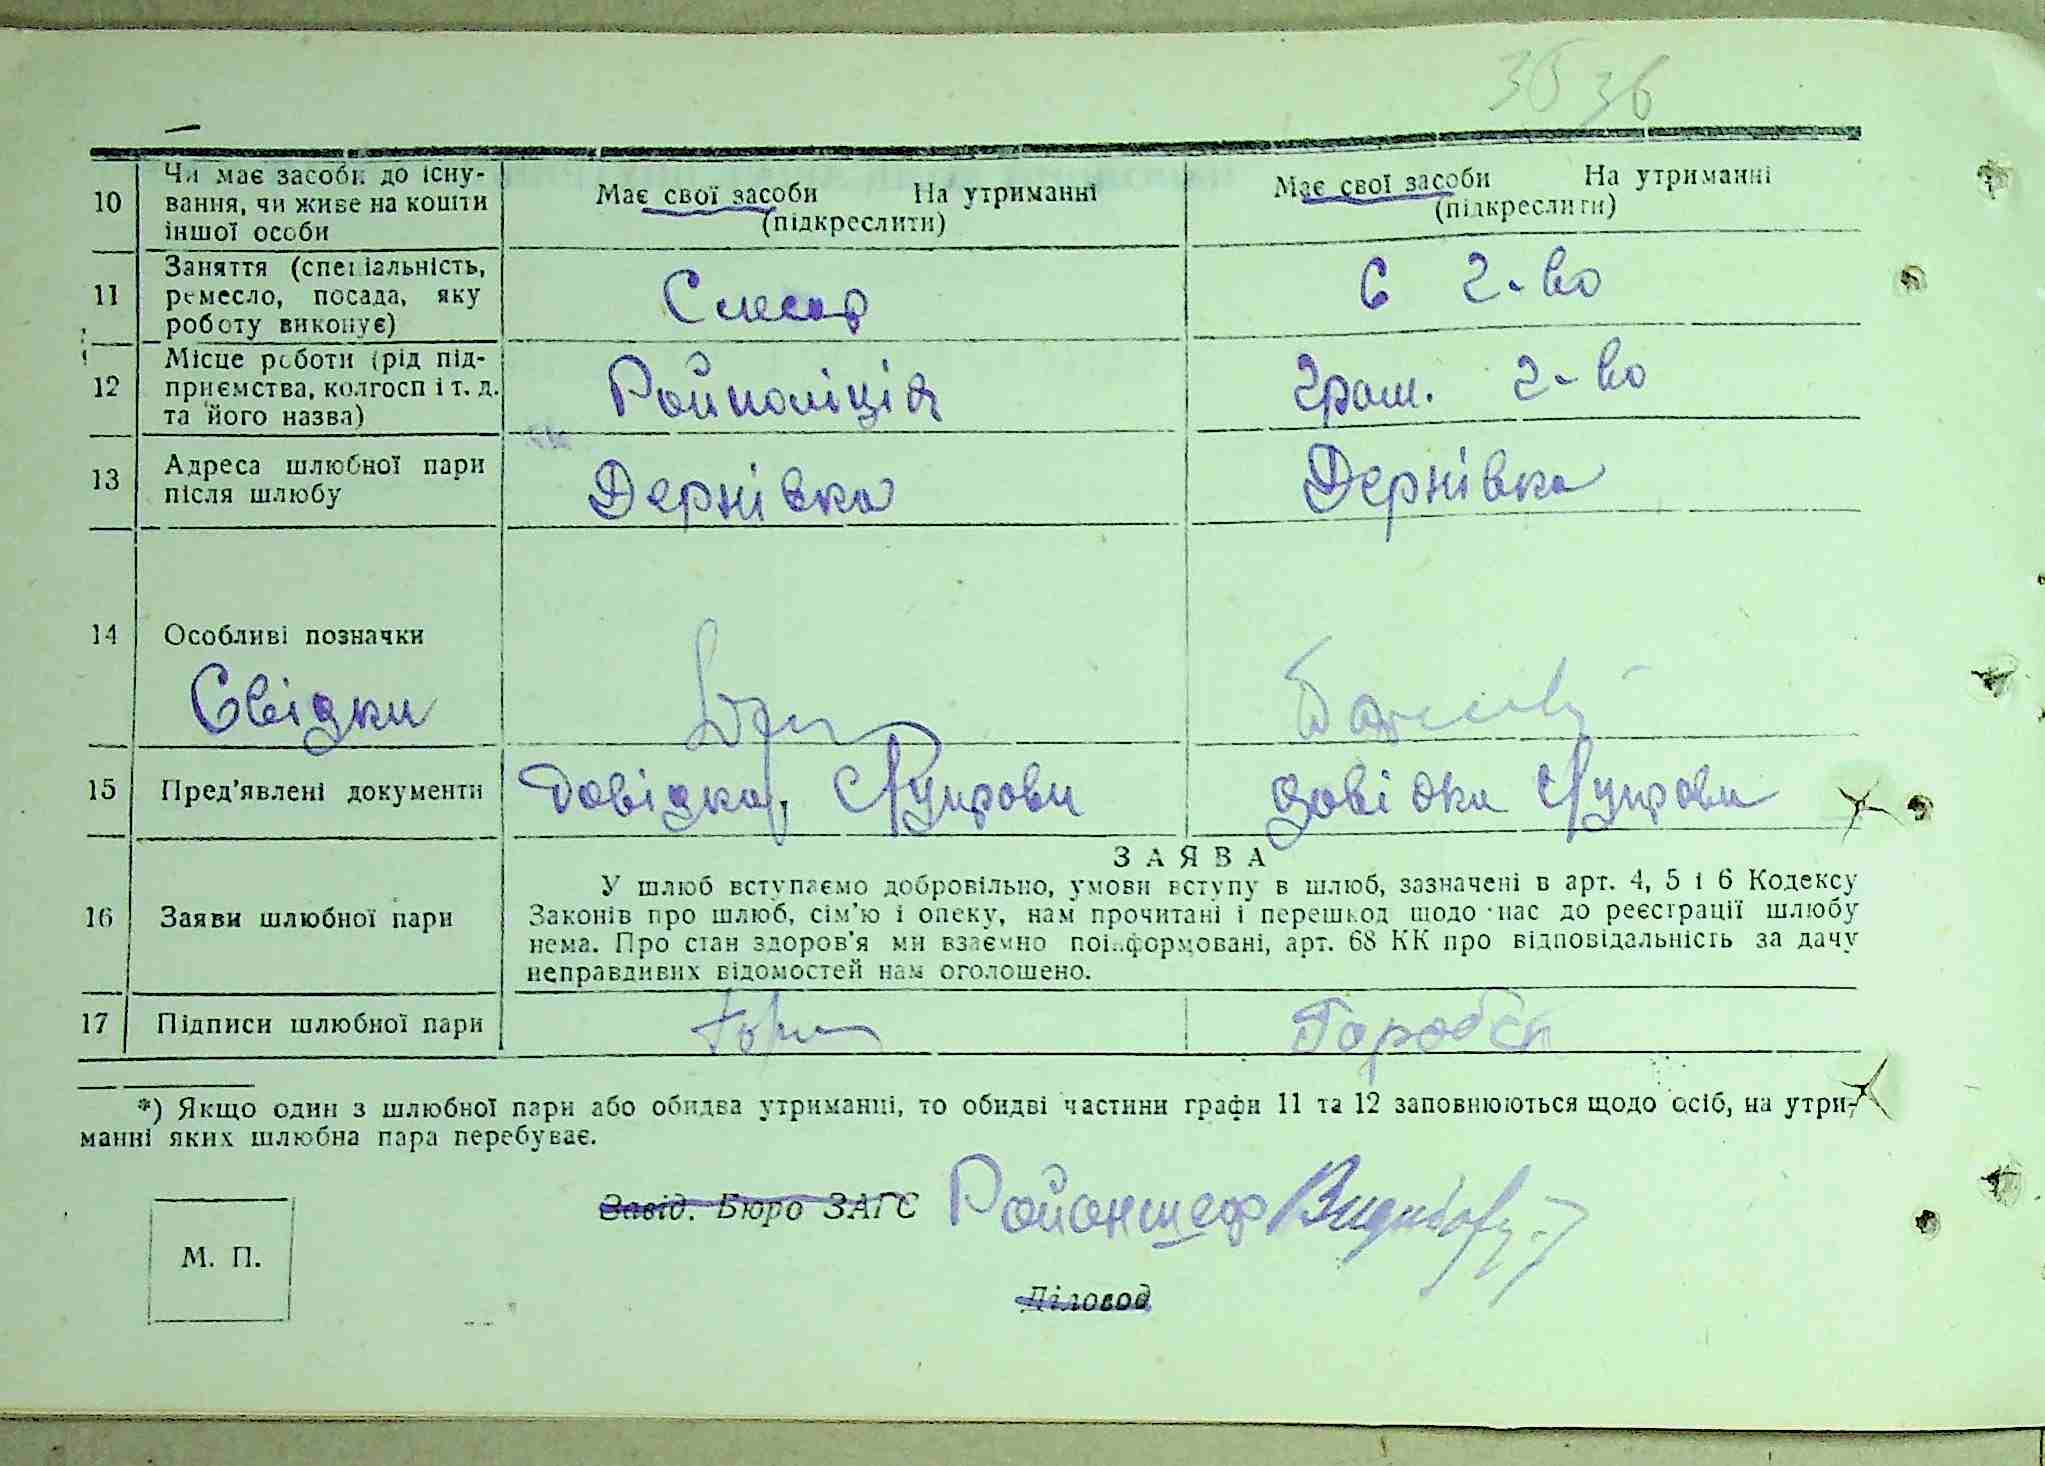 36 36
10
Чи має засоби до існу-
вання, чи живе на кошти
іншої особи
Має свої засоби На утриманні
(підкреслити)
Має свої засоби На утриманні
(підкреслити)
11
Заняття (спеціальність,
ремесло, посада, яку
роботу виконує)
Слесар
С г-во
12
Місце роботи (рід під-
приємства, колгосп і т. д.
та його назва)
Райполіція
Гром. г-во
13
Адреса шлюбної пари
після шлюбу
Дернівка
Дернівка
14
Особливі позначки
Свідки
15
Пред'явлені документи
Довідка, с/управи
довідка с/управи
16
Заяви шлюбної пари
ЗАЯВА
У шлюб вступаємо добровільно, умови вступу в шлюб, зазначені в арт. 4, 5 і 6 Кодексу
Законів про шлюб, сім'ю і опеку, нам прочитані і перешкод щодо нас до реєстрації шлюбу
нема. Про стан здоров'я ми взаємно поінформовані, арт. 68 КК про відповідальність за дачу
неправдивих відомостей нам оголошено.
17
Підписи шлюбної пари
*) Якщо один з шлюбної пари або обидва утриманні, то обидві частини графи 11 та 12 заповнюються щодо осіб, на утри-
манні яких шлюбна пара перебуває.
Завід. Бюро ЗАГС Районшеф
М. П.
Діловод